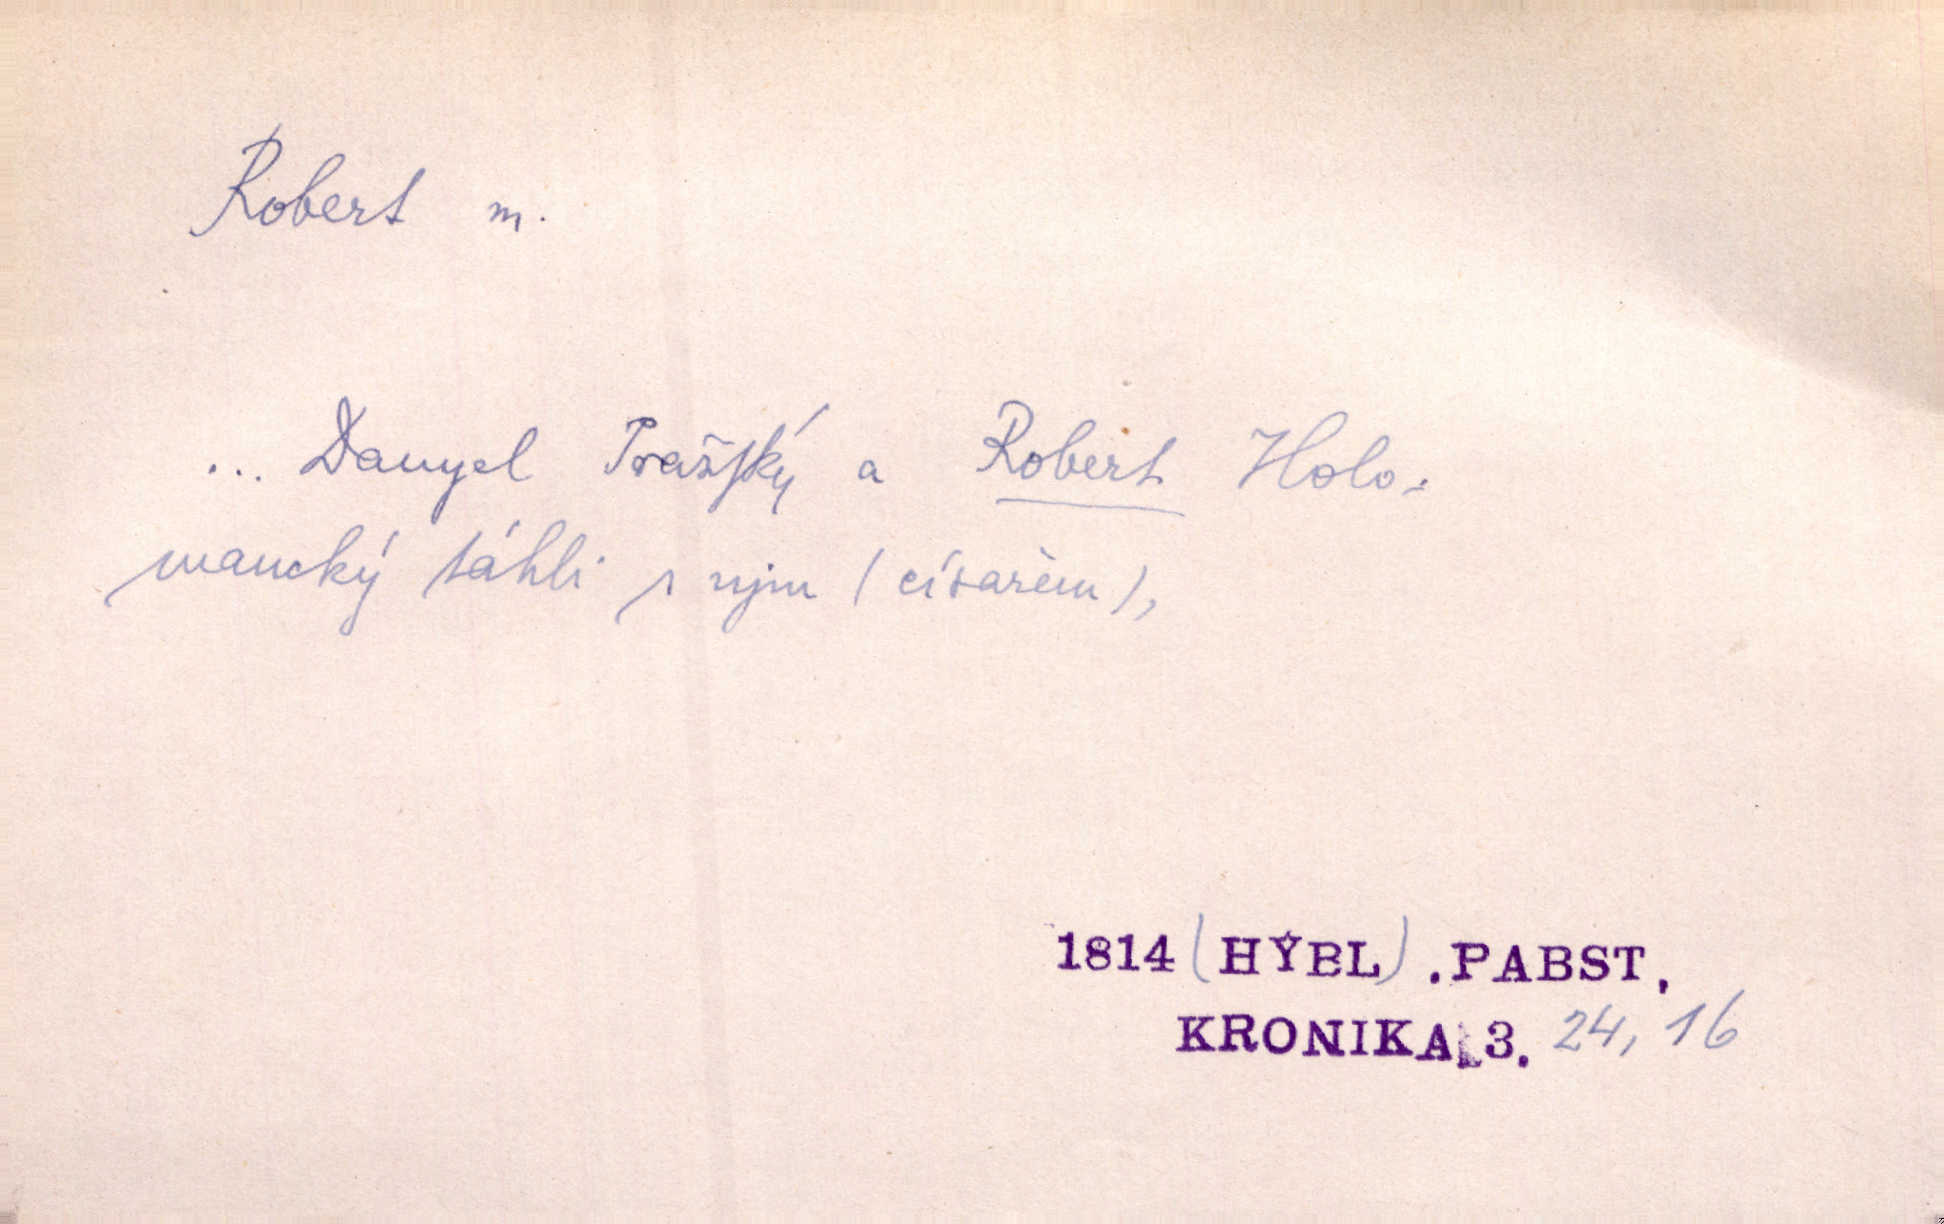 Robert m.
... Danyel Pražský a Robert Holo-
maucký táhli s njm (císařem),
1814 (HÝBL). PABST,
KRONIKA 3. 24, 16